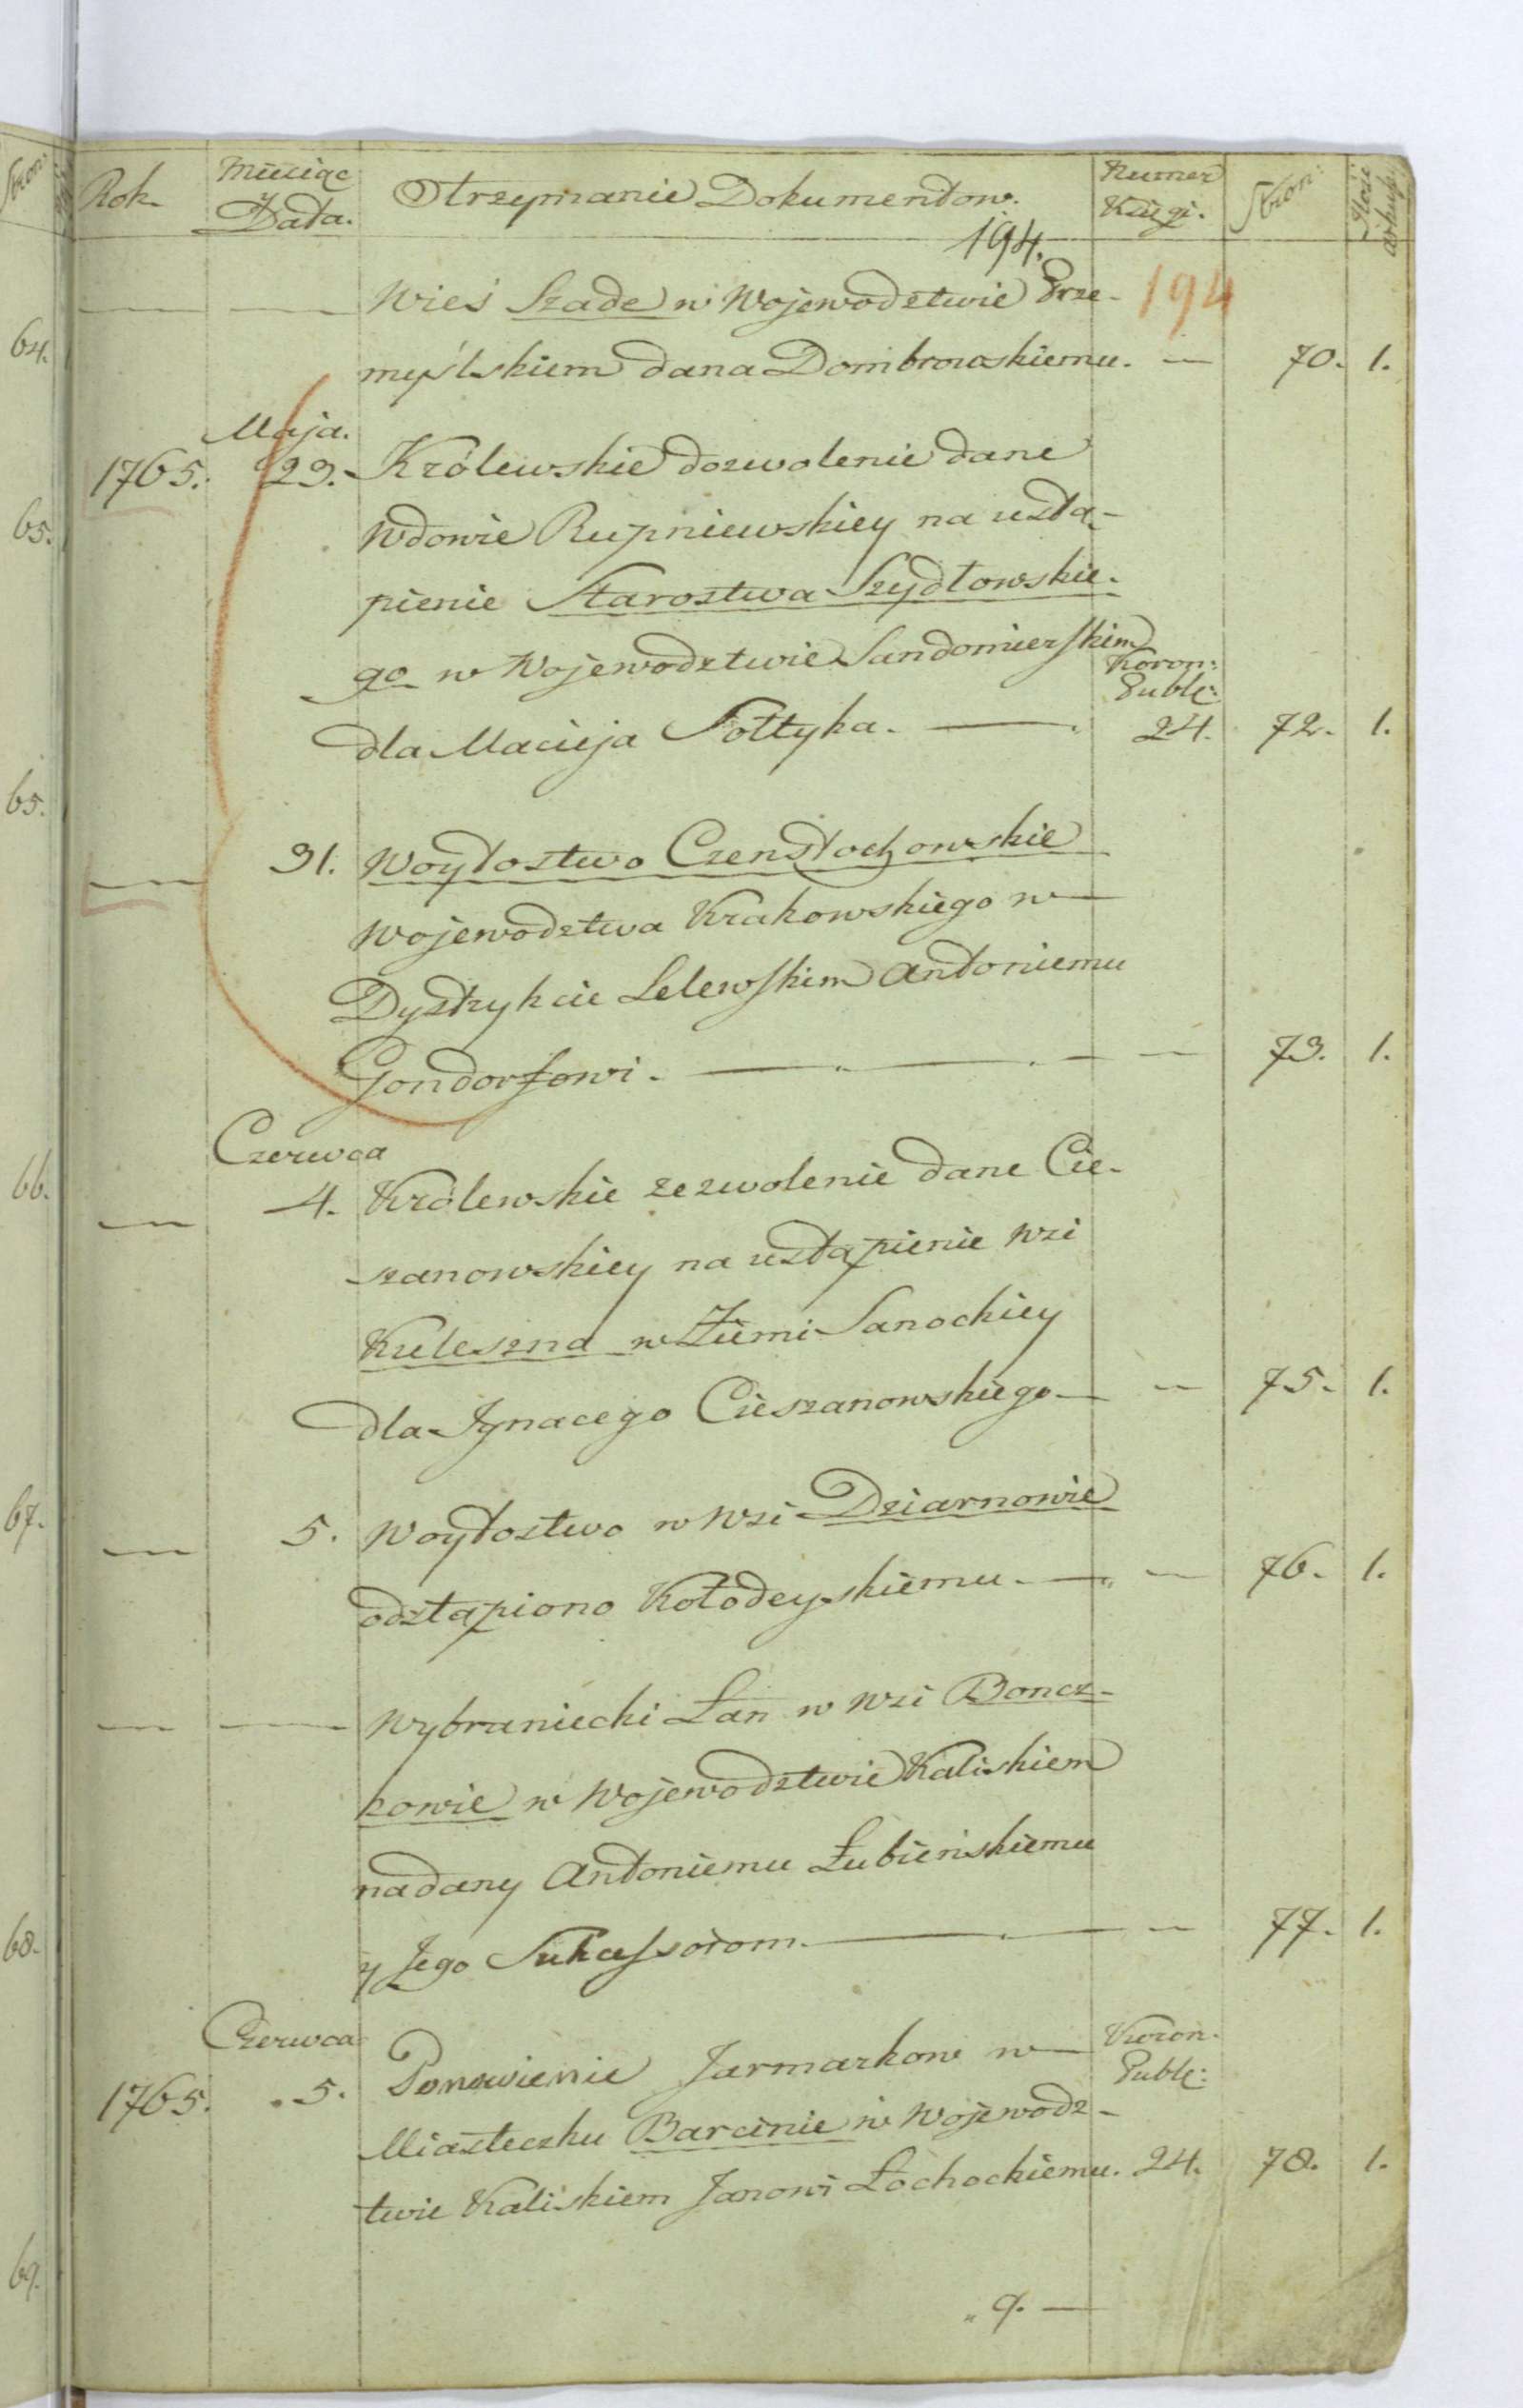 Rok Miesiąc Data. Otrzymanie Dokumentow. Numer Księgi. Stron: Ilość arkuszy
194.
— — Wieś Szade w Wojewodztwie Prze- 194
myślskiem dana Dombrowskiemu. — 70. 1.
Maja.
1765. 29. Królewskie dozwolenie dane
Wdowie Rupniewskiey na ustą-
pienie Starostwa Szydłowskie-
go w Wojewodztwie Sandomierskim Koron: Publ:
dla Macieja Sołtyka. — 24. 72. 1.
— 31. Woytostwo Czenstochowskie
Wojewodztwa Krakowskiego w
Dystrykcie Lelewskim Antoniemu
Gondorfowi. — — 73. 1.
Czerwca
— 4. Królewskie zezwolenie dane Cie-
szanowskiey na ustąpienie Wsi
Kuleszna w Ziemi Sanockiey
dla Ignacego Cieszanowskiego — — 75. 1.
— 5. Woytostwo w Wsi Dziarnowie
odstąpiono Kołodeyskiemu. — — 76. 1.
— — Wybraniecki Łan w Wsi Boncz-
kowie w Wojewodztwie Kaliskiem
nadany Antoniemu Łubieńskiemu
y Jego Sukcessorom. — — 77. 1.
Czerwca Koron. Publ:
1765. 5. Ponowienie Jarmarkow w
Miasteczku Barcinie w Wojewodz-
twie Kaliskiem Janowi Łochockiemu. 24. 78. 1.
„ 9. —
64.
65.
65.
66.
67.
68.
69.